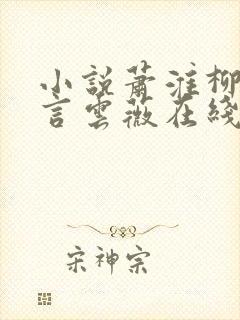 小說蕭淮柳
言雲薇在綫
宋神宗